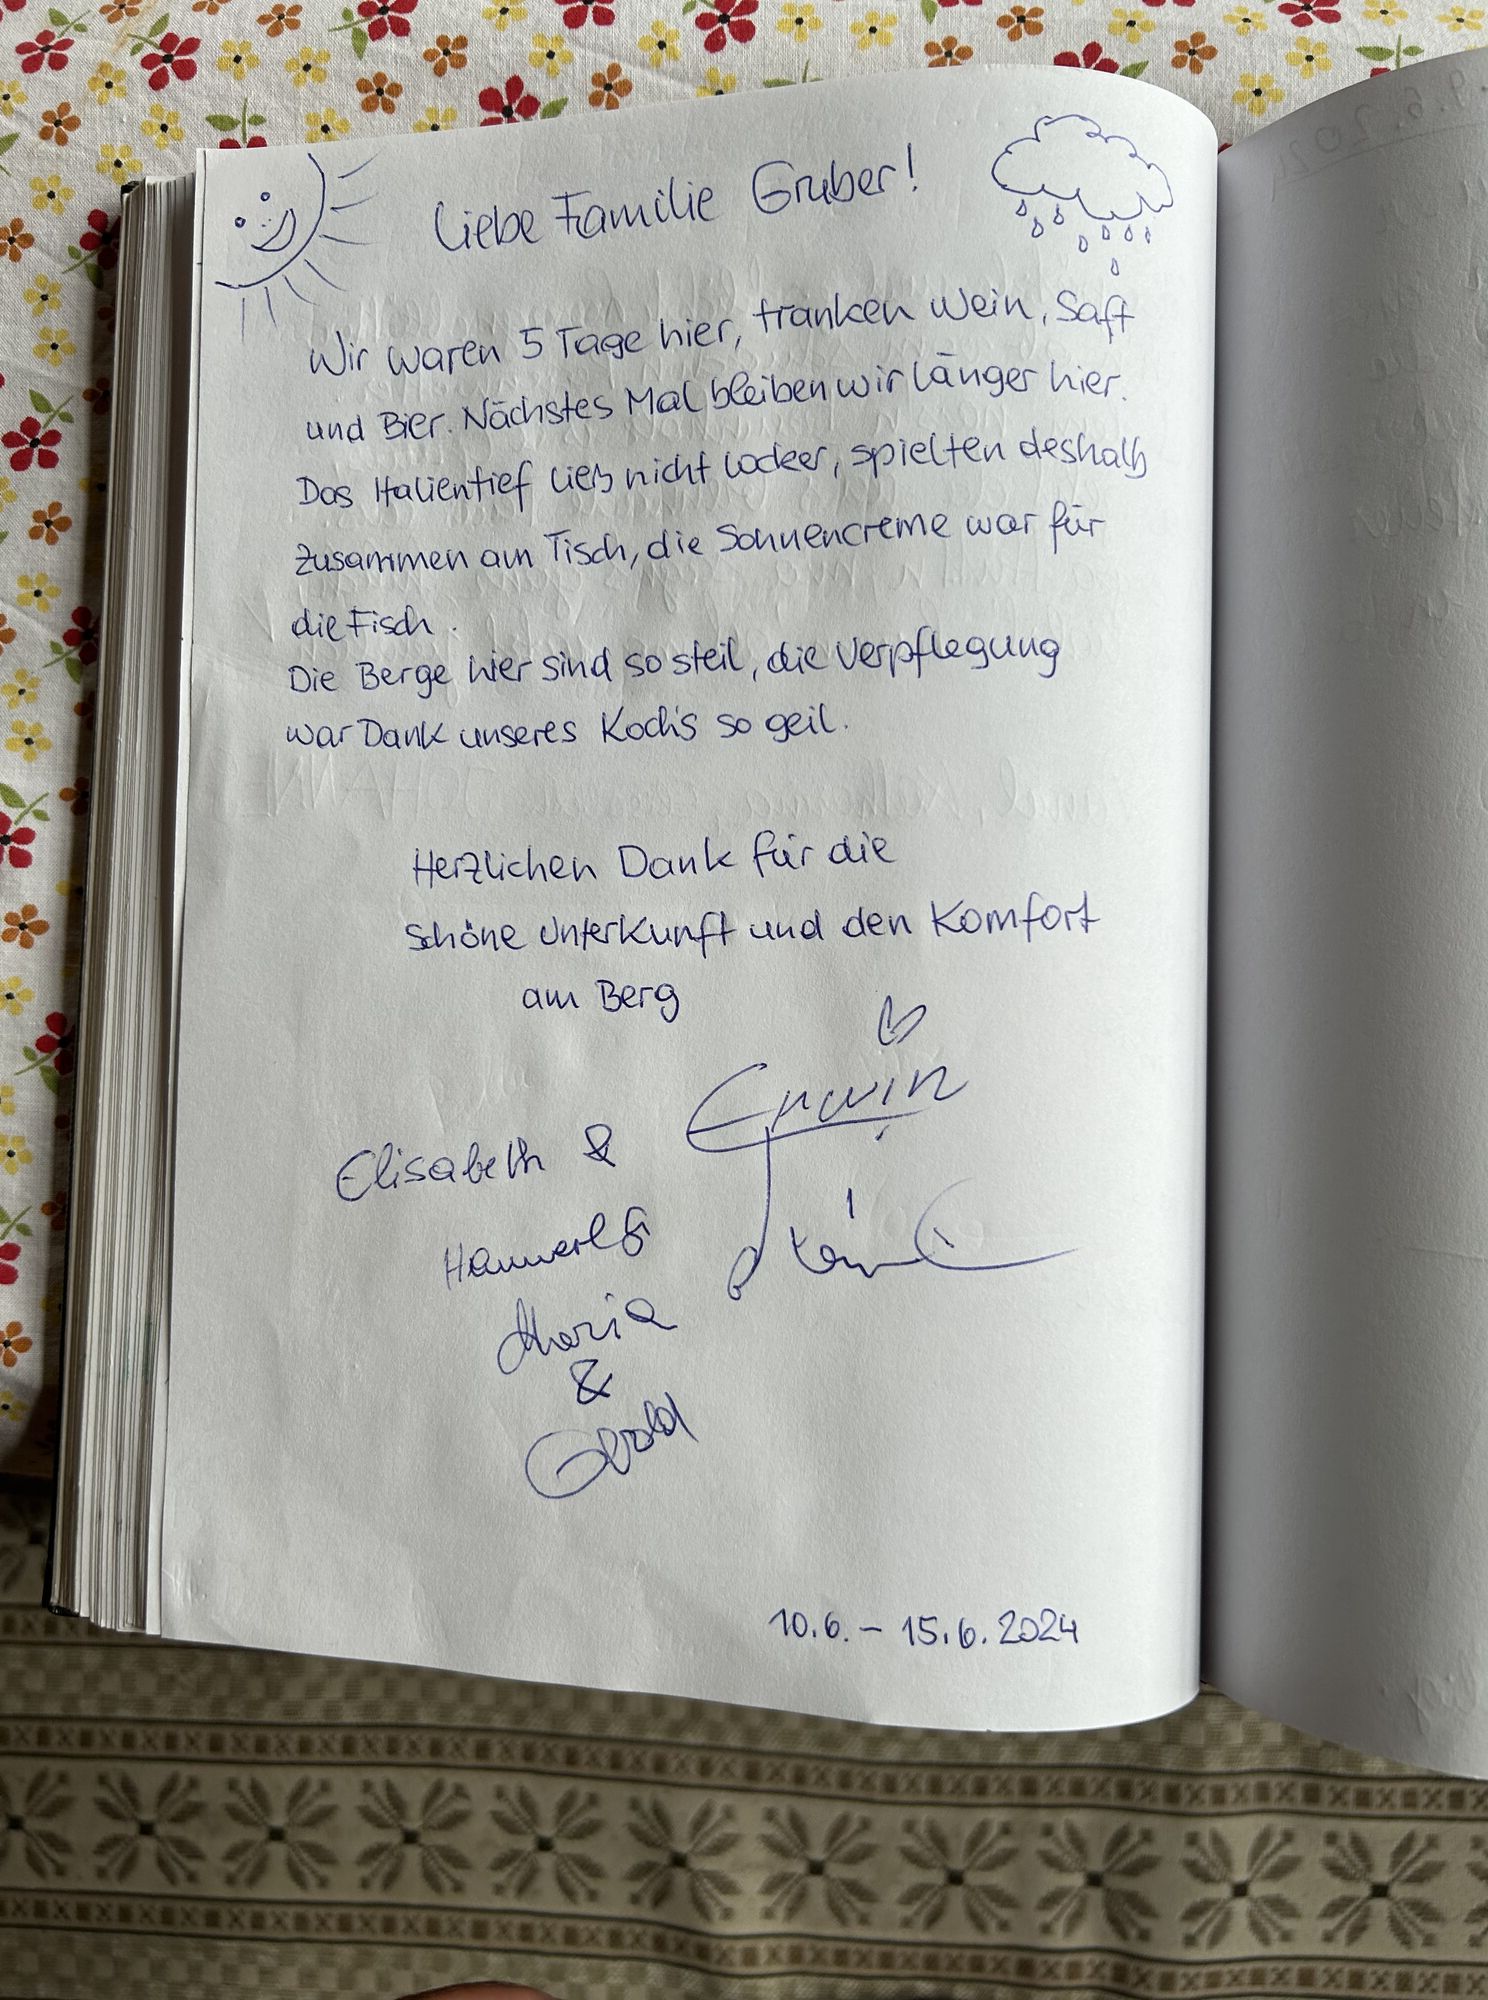 Liebe Familie Gruber!
Wir waren 5 Tage hier, tranken Wein, Saft
und Bier. Nächstes Mal bleiben wir länger hier.
Das Italientief ließ nicht locker, spielten deshalb
zusammen am Tisch, die Sonnencreme war für
die Fisch.
Die Berge hier sind so steil, die Verpflegung
war Dank unseres Koch's so geil.
Herzlichen Dank für die
schöne Unterkunft und den Komfort
am Berg
Erwin
Elisabeth &
Hannerl &
Maria
&
Gerold
10.6. – 15.6.2024